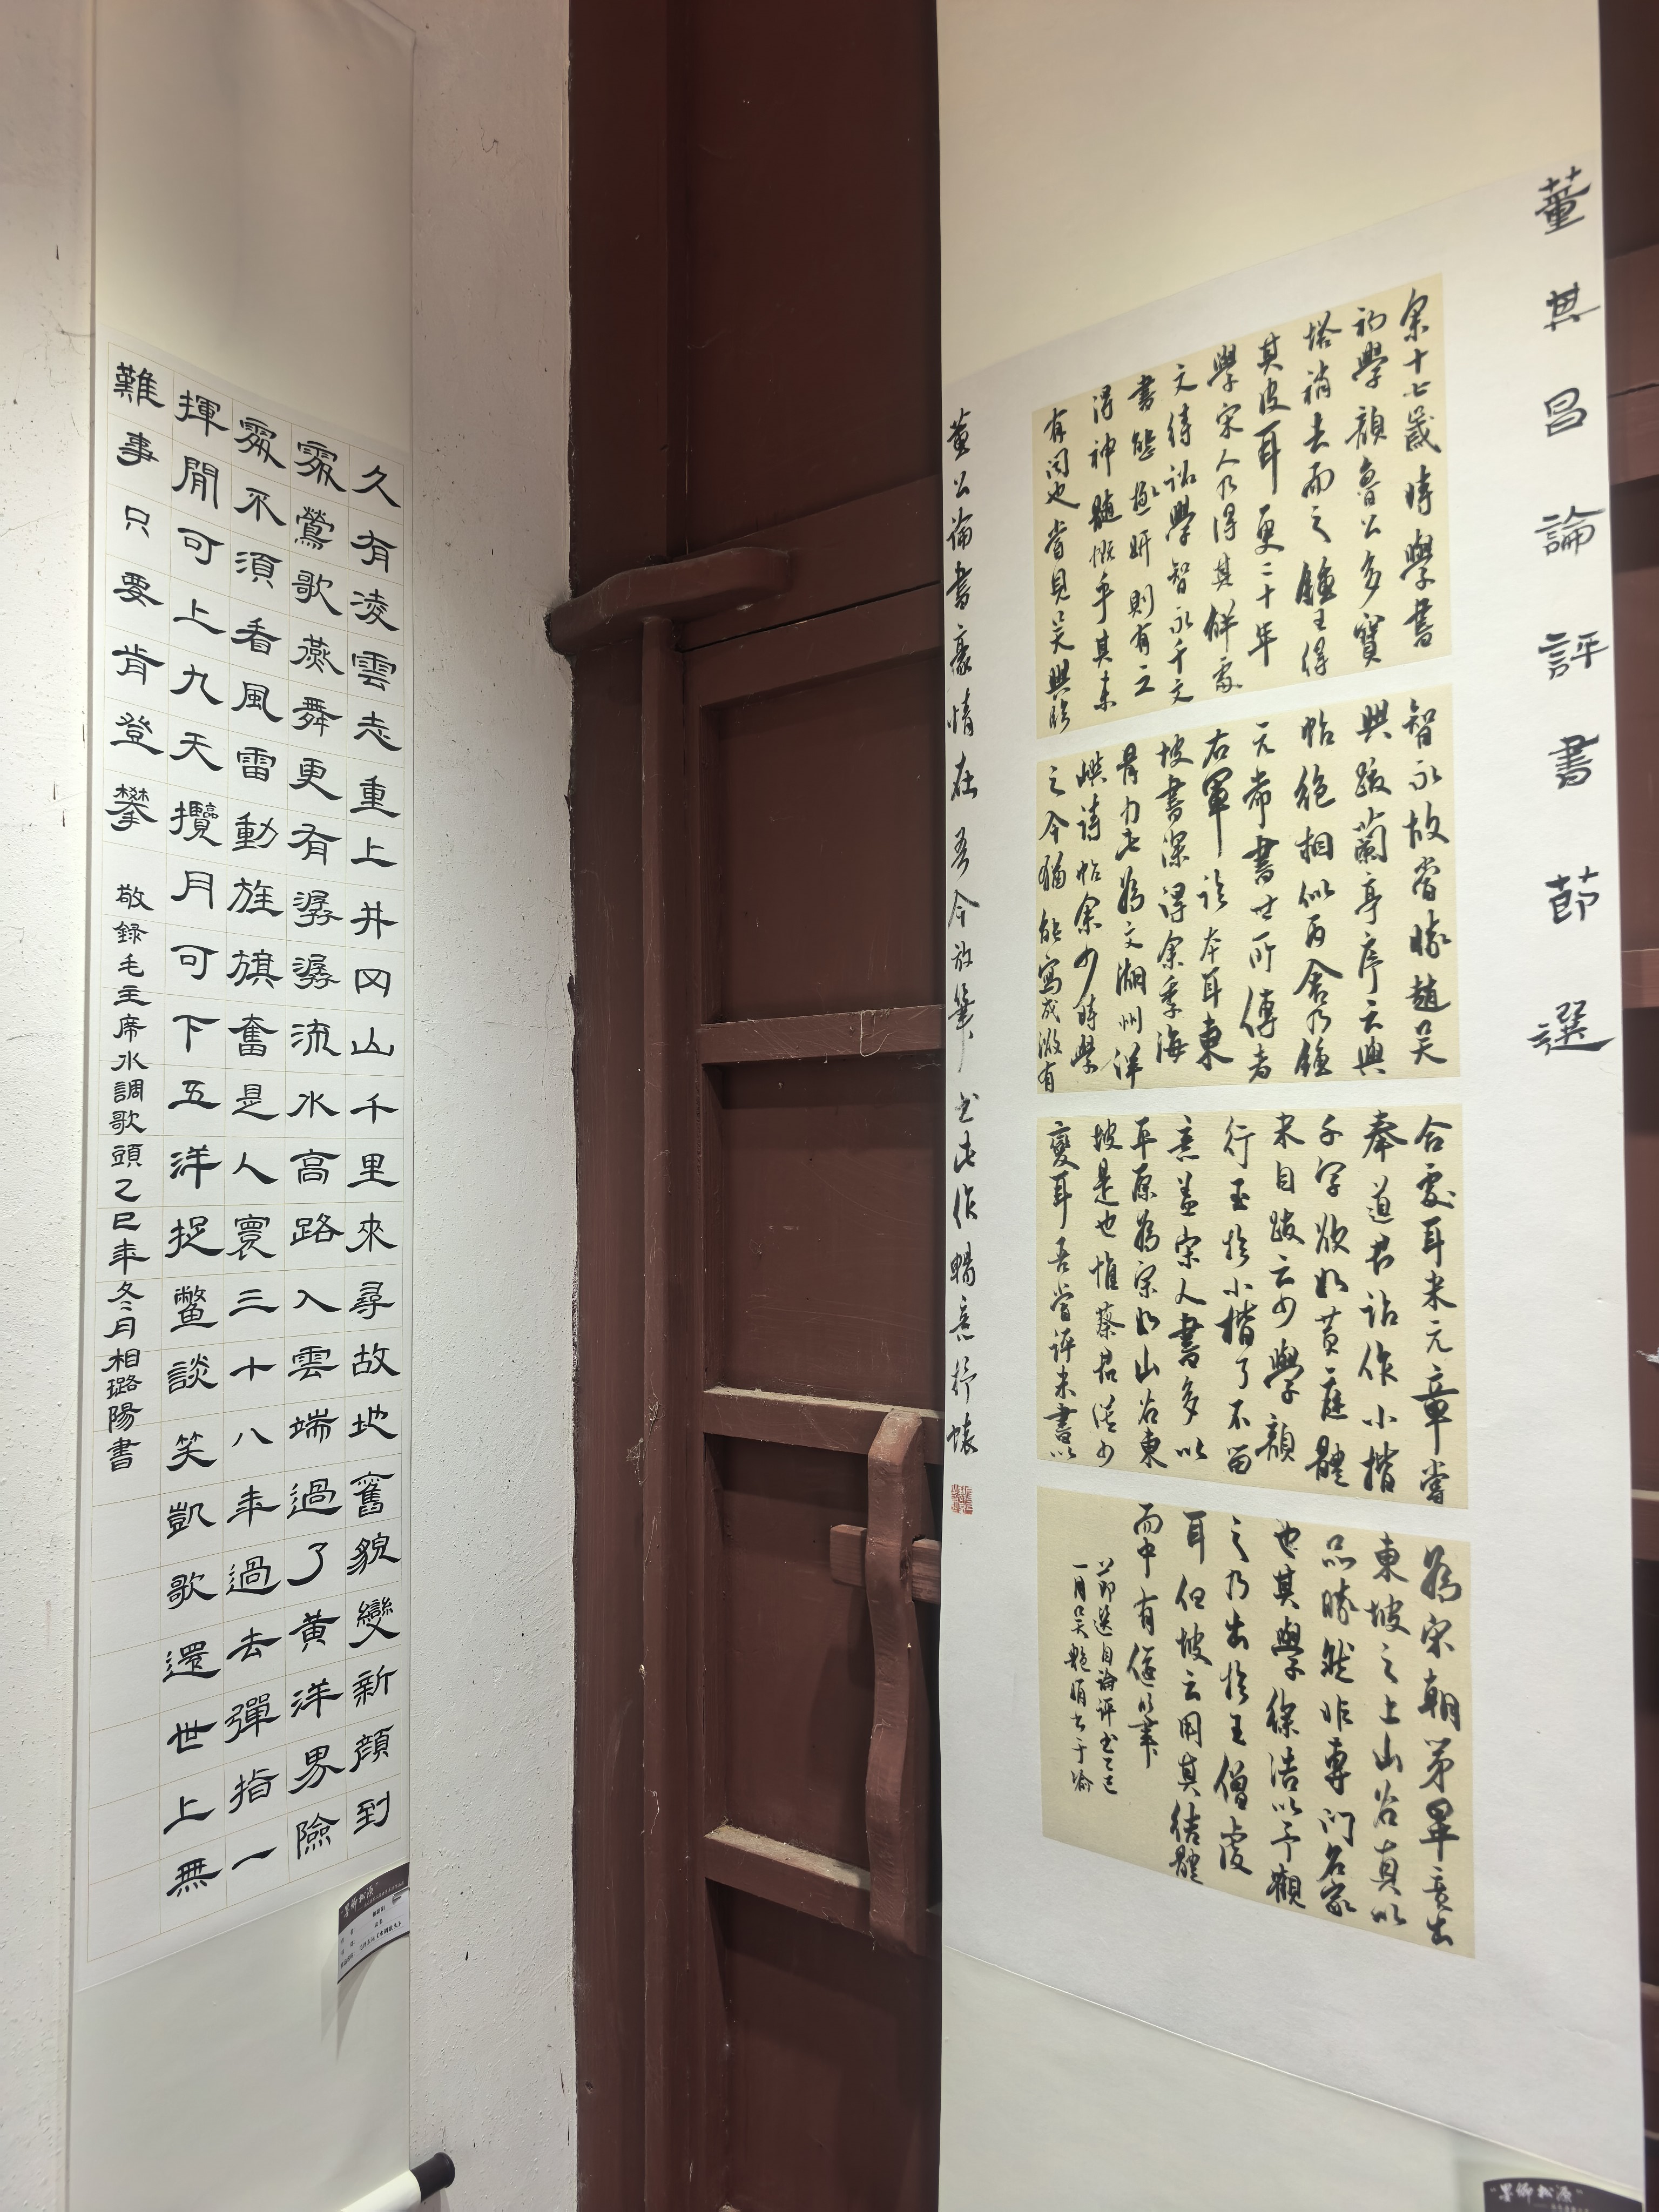 董其昌論評書節選
余十七歲時學書
初學顏魯公多寶
塔稍去而之鍾王得
其皮耳更二十年
學宋人乃得其解處
文待詔學智永千文
書態極妍則有之
得神髓概乎其未
有聞也嘗見吳興臨
智永故當勝趙吳
興跋蘭亭序云與
帖絕相似丙舍乃鍾
元常書世所傳者
右軍臨本耳東
坡書深得余季海
骨力此為文湖州洋
嶼詩帖余少時學
之今猶能寫成微有
合處耳米元章嘗
奉道君詔作小楷
千字欲如黃庭體
米自跋云少學顏
行至於小楷了不留
意蓋宋人書多以
平原為宗如山谷東
坡是也惟蔡君謨少
變耳吾嘗評米書以
為宋朝第畢竟出
東坡之上山谷直以
品勝然非專門名家
也其學徐浩以予觀
之乃出於王僧虔
耳但坡云用其結體
而中有偃筆
節選自論評書乙巳
一月吳艷娟書于渝
董公論書豪情在吾今放筆書此作暢意抒懷
久有凌雲志重上井冈山千里來尋故地舊貌變新顏到
處鶯歌燕舞更有潺潺流水高路入雲端過了黃洋界險
處不須看風雷動旌旗奮是人寰三十八年過去彈指一
揮間可上九天攬月可下五洋捉鱉談笑凱歌還世上無
難事只要肯登攀 敬錄毛主席水調歌頭乙巳年冬月相璐陽書